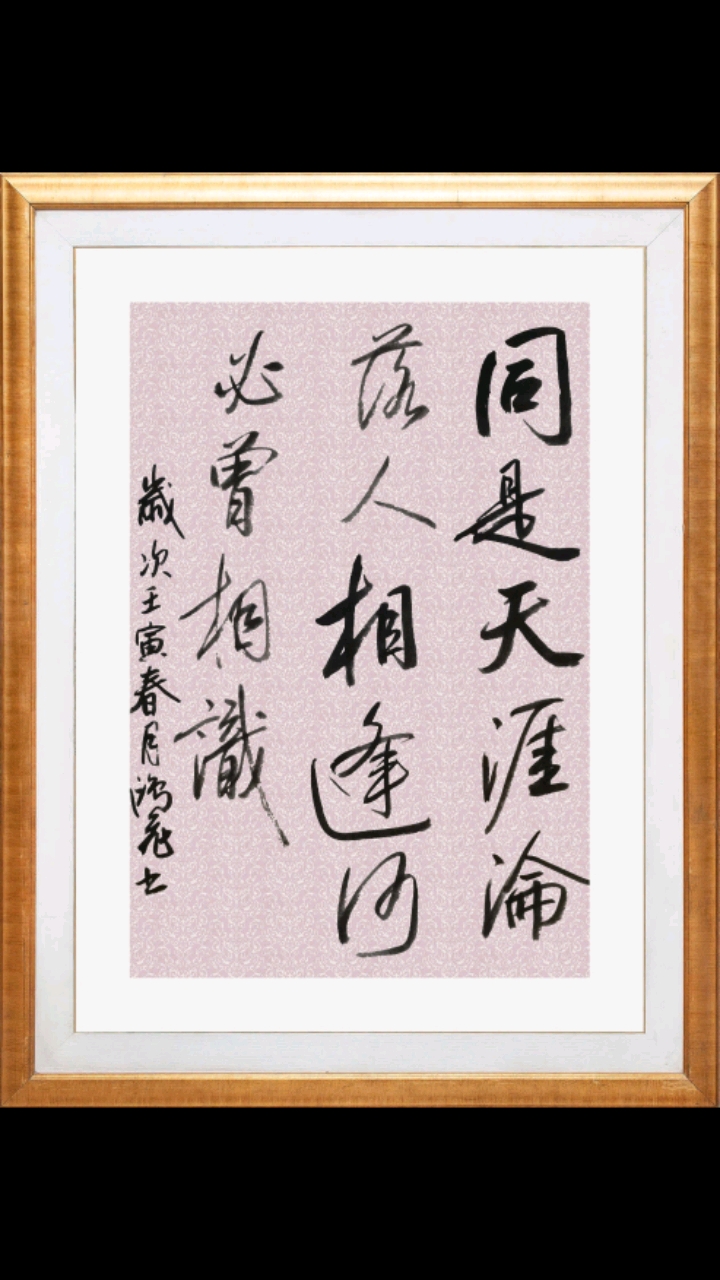 同是天涯淪
落人相逢何
必曾相識
歲次壬寅春月鴻飛书